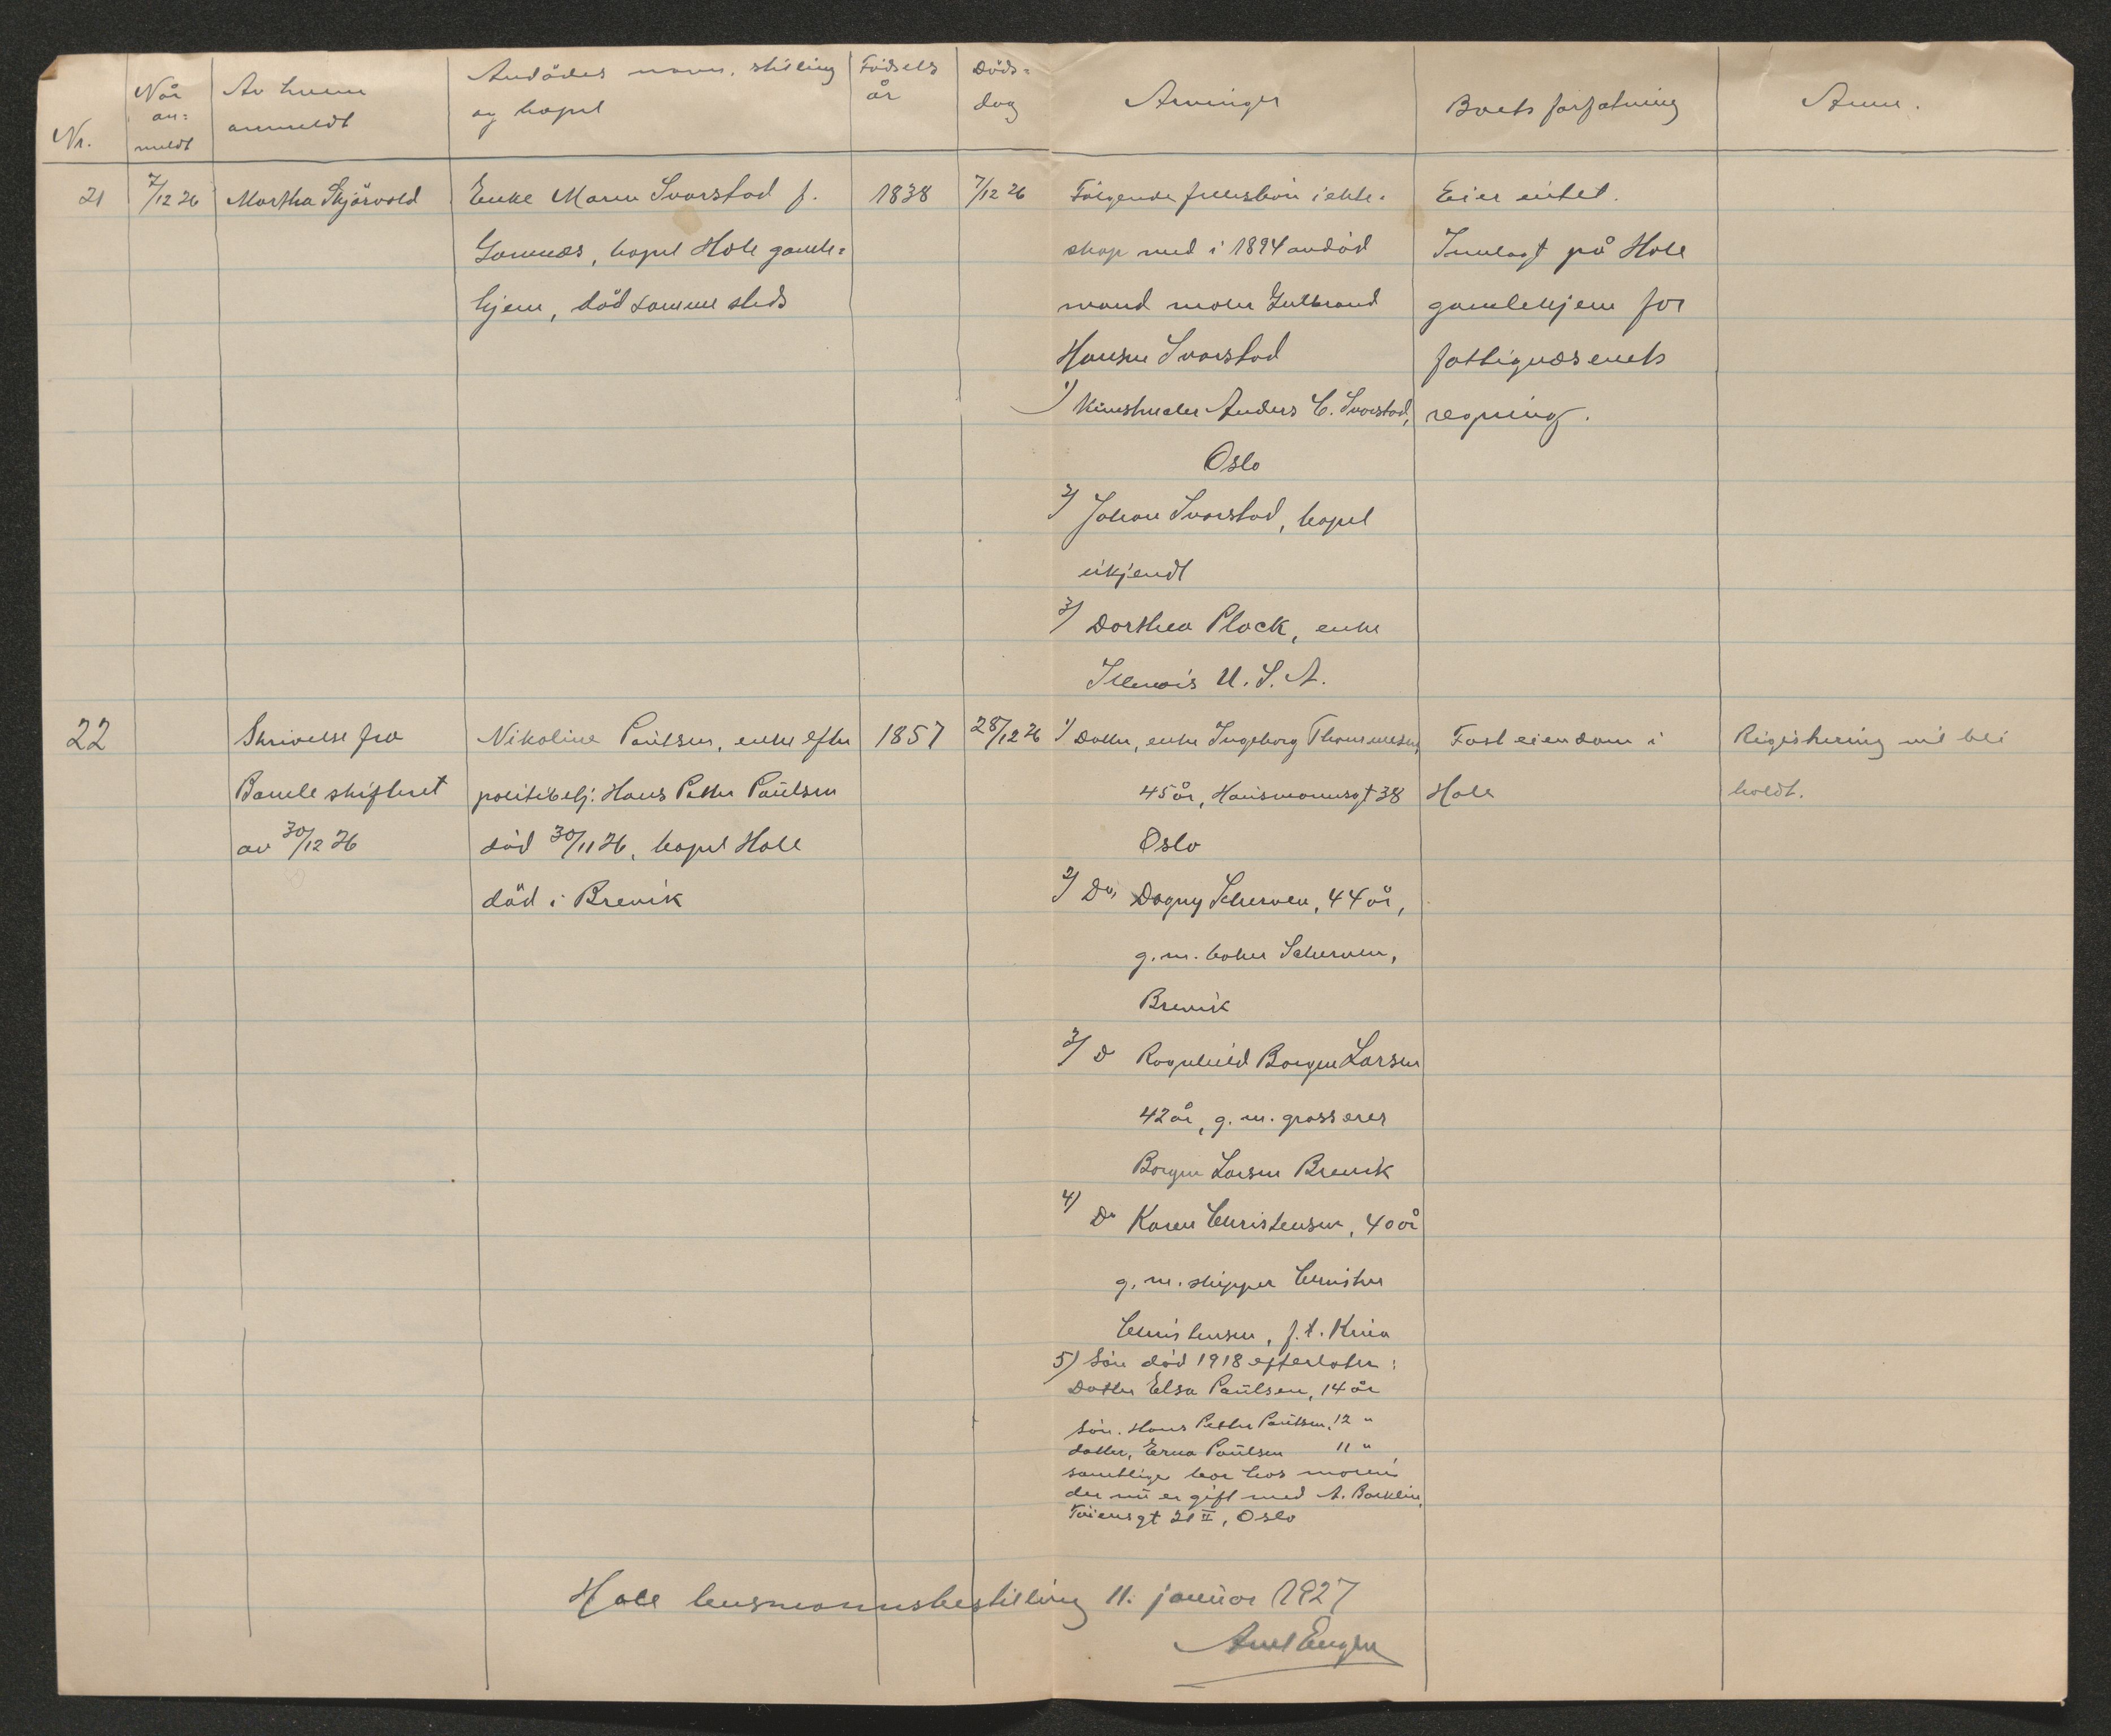 Nr.
Når an= meldt
Av hvem anmeldt
Avdødes navn, stilling og bopel
Fødsels år
Døds= dag
Arvinger
Boets forfatning
Anm.
21
7/12 26
Martha Skjørvold
Enke Maren Svarstad f.
Gomnæs, bopel Hole gamle=
hjem, død samme steds
1838
7/12 26
Følgende fellesbarn i ekte-
skap med i 1894 avdød
mand maler Gulbrand
Hansen Svarstad
1) Kunstmaler Anders C. Svarstad,
Oslo
2) Johan Svarstad, bopel
ukjendt
3) Dorthea Plack, enke
Illinois U.S.A.
Eier intet.
Innlagt på Hole
gamlehjem for
fattigvæsenets
regning.
22
Skrivelse fra
Bamle skifteret
av 30/12 26
Nikoline Paulsen, enke efter
politibetj. Hans Petter Paulsen
død 30/11 26, bopel Hole
død i Brevik
1857
28/12 26
1) Datter, enke Ingeborg Thommesen,
45 år, Hausmannsgt 38
Oslo
2) Do, Dagny Scherven, 44 år,
g.m. baker Scherven,
Brevik
3) D Ragnhild Borgen Larsen
42 år, g.m. grosserer
Borgen Larsen Brevik
4) Do Karen Christensen, 40 år
g.m. skipper Christen
Christensen, f.t. Kina
5) Søn død 1918 efterlater:
Datter Elsa Paulsen, 14 år
Søn. Hans Petter Paulsen, 12 "
datter, Erna Paulsen 11 "
samtlige bor hos moren
der nu er gift med A.
Tøiensgt 21 II, Oslo
Fast eiendom i
Hole
Registrering vil bli
holdt.
Hole lensmannsbestilling 11. januar 1927